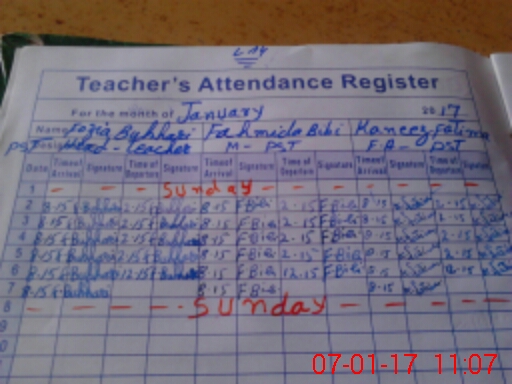 Teacher's Attendance Register
For the month of January 2017
Name Fozia Bukhari Fahmida Bibi Kaneez Fatima
PST Head-teacher M- PST F.A- PST
Date Time of Arrival Signature Time of Departure Signature Time of Arrival Signature Time of Departure Signature Time of Arrival Signature Time of Departure Signature
1 - - - Sunday - - - - - -
2 8.15 Bukhari 2.15 Bukhari 8.15 F Bibi 2.15 F Bibi 8.15 2.15
3 8.15 Bukhari 2.15 Bukhari 8.15 F Bibi 2.15 F Bibi 8.15 2.15
4 8.15 Bukhari 2.15 Bukhari 8.15 F Bibi 2.15 F Bibi 8.15 2.15
5 8.15 Bukhari 2.15 Bukhari 8.15 F Bibi 2.15 F Bibi 8.15 2.15
6 8.15 Bukhari 12.15 Bukhari 8.15 F Bibi 12.15 F Bibi 8.15 12.15
7 8.15 Bukhari 8.15 F Bibi 8.15
8 - - - - Sunday - - - - -
9
10
07-01-17 11:07